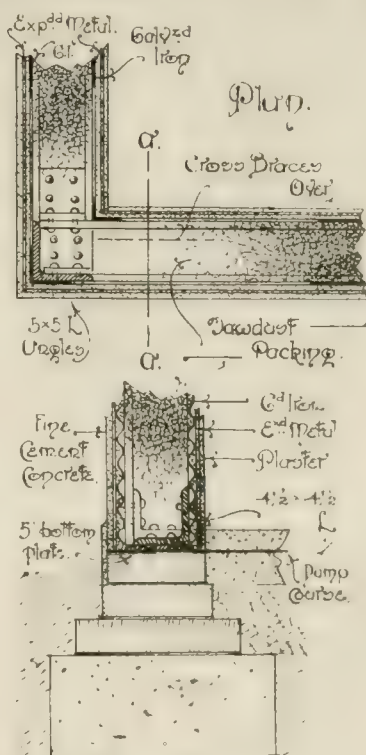 Expdd Metul.
G.I.
Galvzd
Iron
Plan.
a.
Cross Braces
Over
5×5 L
Angles
a.
Sawdust
Packing.
Gd Iron
Exd Metal
Plaster
Fine
Cement
Concrete.
4½ × 4½
L
5" bottom
plate.
Damp
Course.